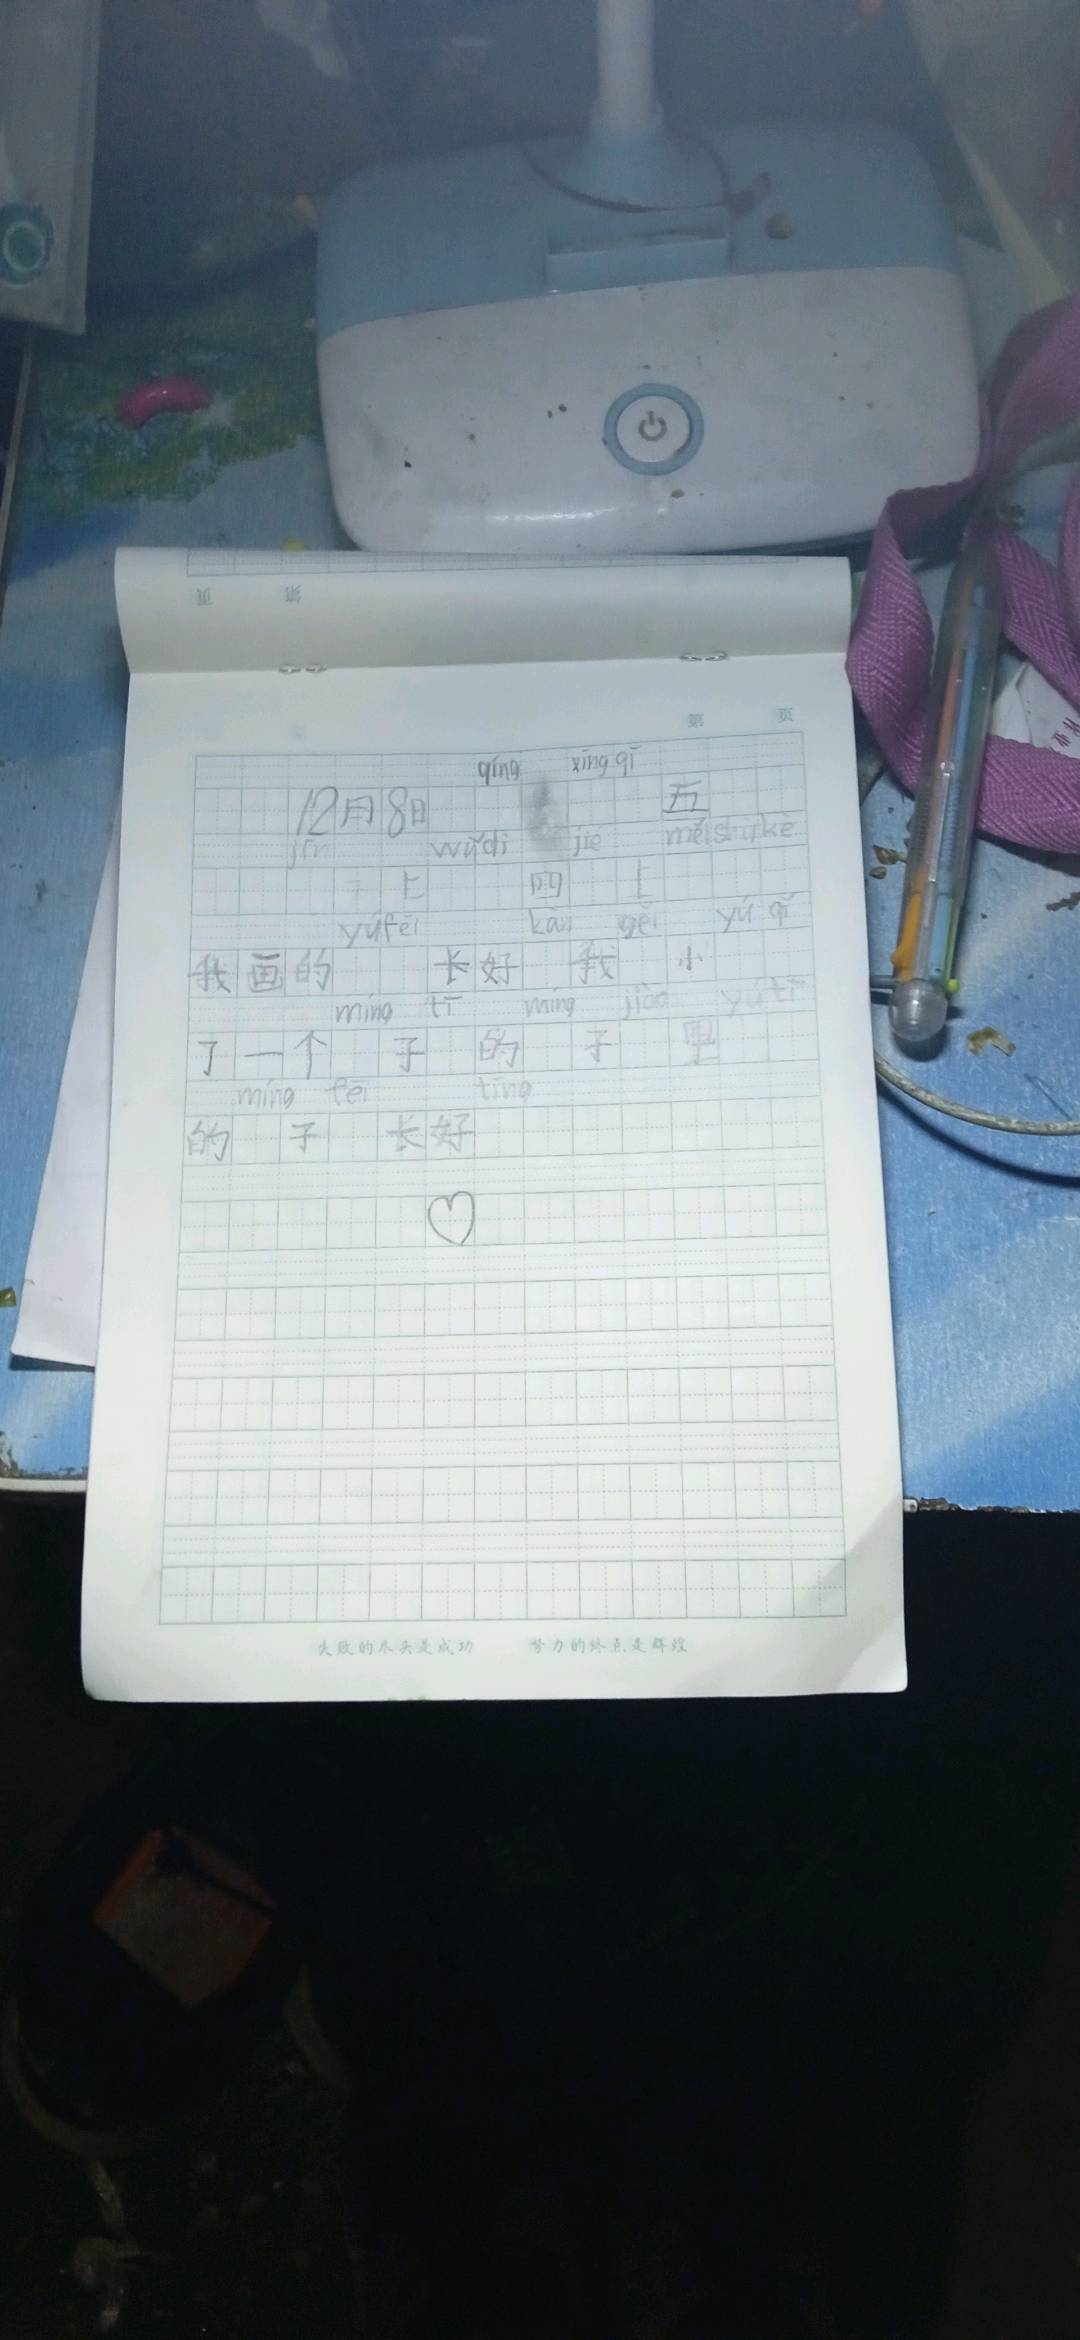 页 第
第 页
qíng xīng qī
12月8日 五
wǔdì jié měishùkè
上 四 上
yúfēi kàn gěi yú qǐ
我画的 长好 我 小
míng tī míng jiào yú tī
了一个 子 的 子 里
míng fēi tīng
的 子 长好
失败的尽头是成功 努力的终点是辉煌